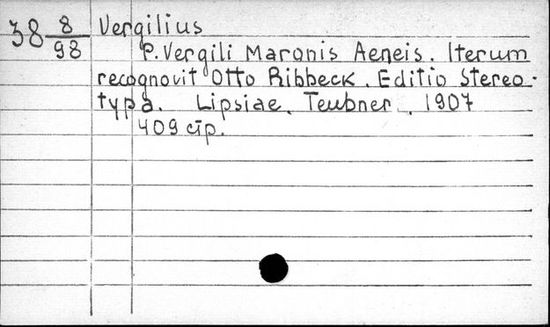 38 8/98 Vergilius
P. Vergili Maronis Aeneis. Iterum
recognovit Otto Ribbeck. Editio stereo-
typa. Lipsiae, Teubner, 1907
409 стр.